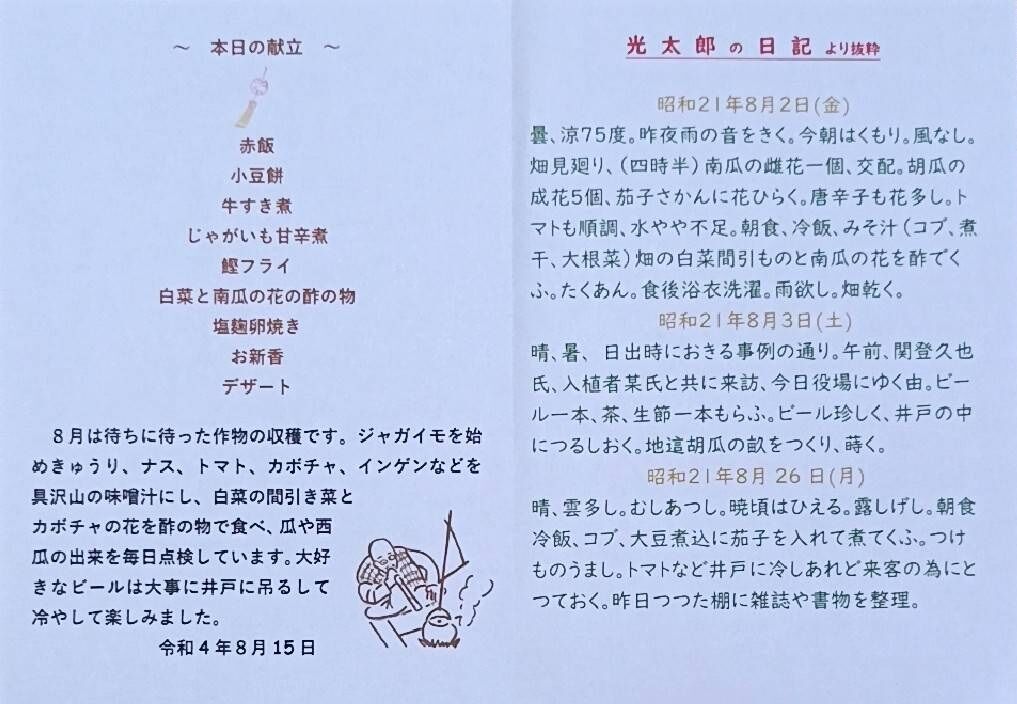 ～ 本日の献立 ～
赤飯
小豆餅
牛すき煮
じゃがいも甘辛煮
鰹フライ
白菜と南瓜の花の酢の物
塩麹卵焼き
お新香
デザート
８月は待ちに待った作物の収穫です。ジャガイモを始
めきゅうり、ナス、トマト、カボチャ、インゲンなどを
具沢山の味噌汁にし、白菜の間引き菜と
カボチャの花を酢の物で食べ、瓜や西
瓜の出来を毎日点検しています。大好
きなビールは大事に井戸に吊るして
冷やして楽しみました。
令和４年８月15日
光太郎の日記より抜粋
昭和21年8月2日(金)
曇、涼75度。昨夜雨の音をきく。今朝はくもり。風なし。
畑見廻り、(四時半)南瓜の雌花一個、交配。胡瓜の
成花5個、茄子さかんに花ひらく。唐辛子も花多し。ト
マトも順調、水やや不足。朝食、冷飯、みそ汁(コブ、煮
干、大根菜)畑の白菜間引ものと南瓜の花を酢でく
ふ。たくあん。食後浴衣洗濯。雨欲し。畑乾く。
昭和21年8月3日(土)
晴、暑、日出時におきる事例の通り。午前、関登久也
氏、入植者某氏と共に来訪、今日役場にゆく由。ビー
ル一本、茶、生節一本もらふ。ビール珍しく、井戸の中
につるしおく。地這胡瓜の畝をつくり、蒔く。
昭和21年8月 26 日(月)
晴、雲多し。むしあつし。暁頃はひえる。露しげし。朝食
冷飯、コブ、大豆煮込に茄子を入れて煮てくふ。つけ
ものうまし。トマトなど井戸に冷しあれど来客の為にと
つておく。昨日つつた棚に雑誌や書物を整理。